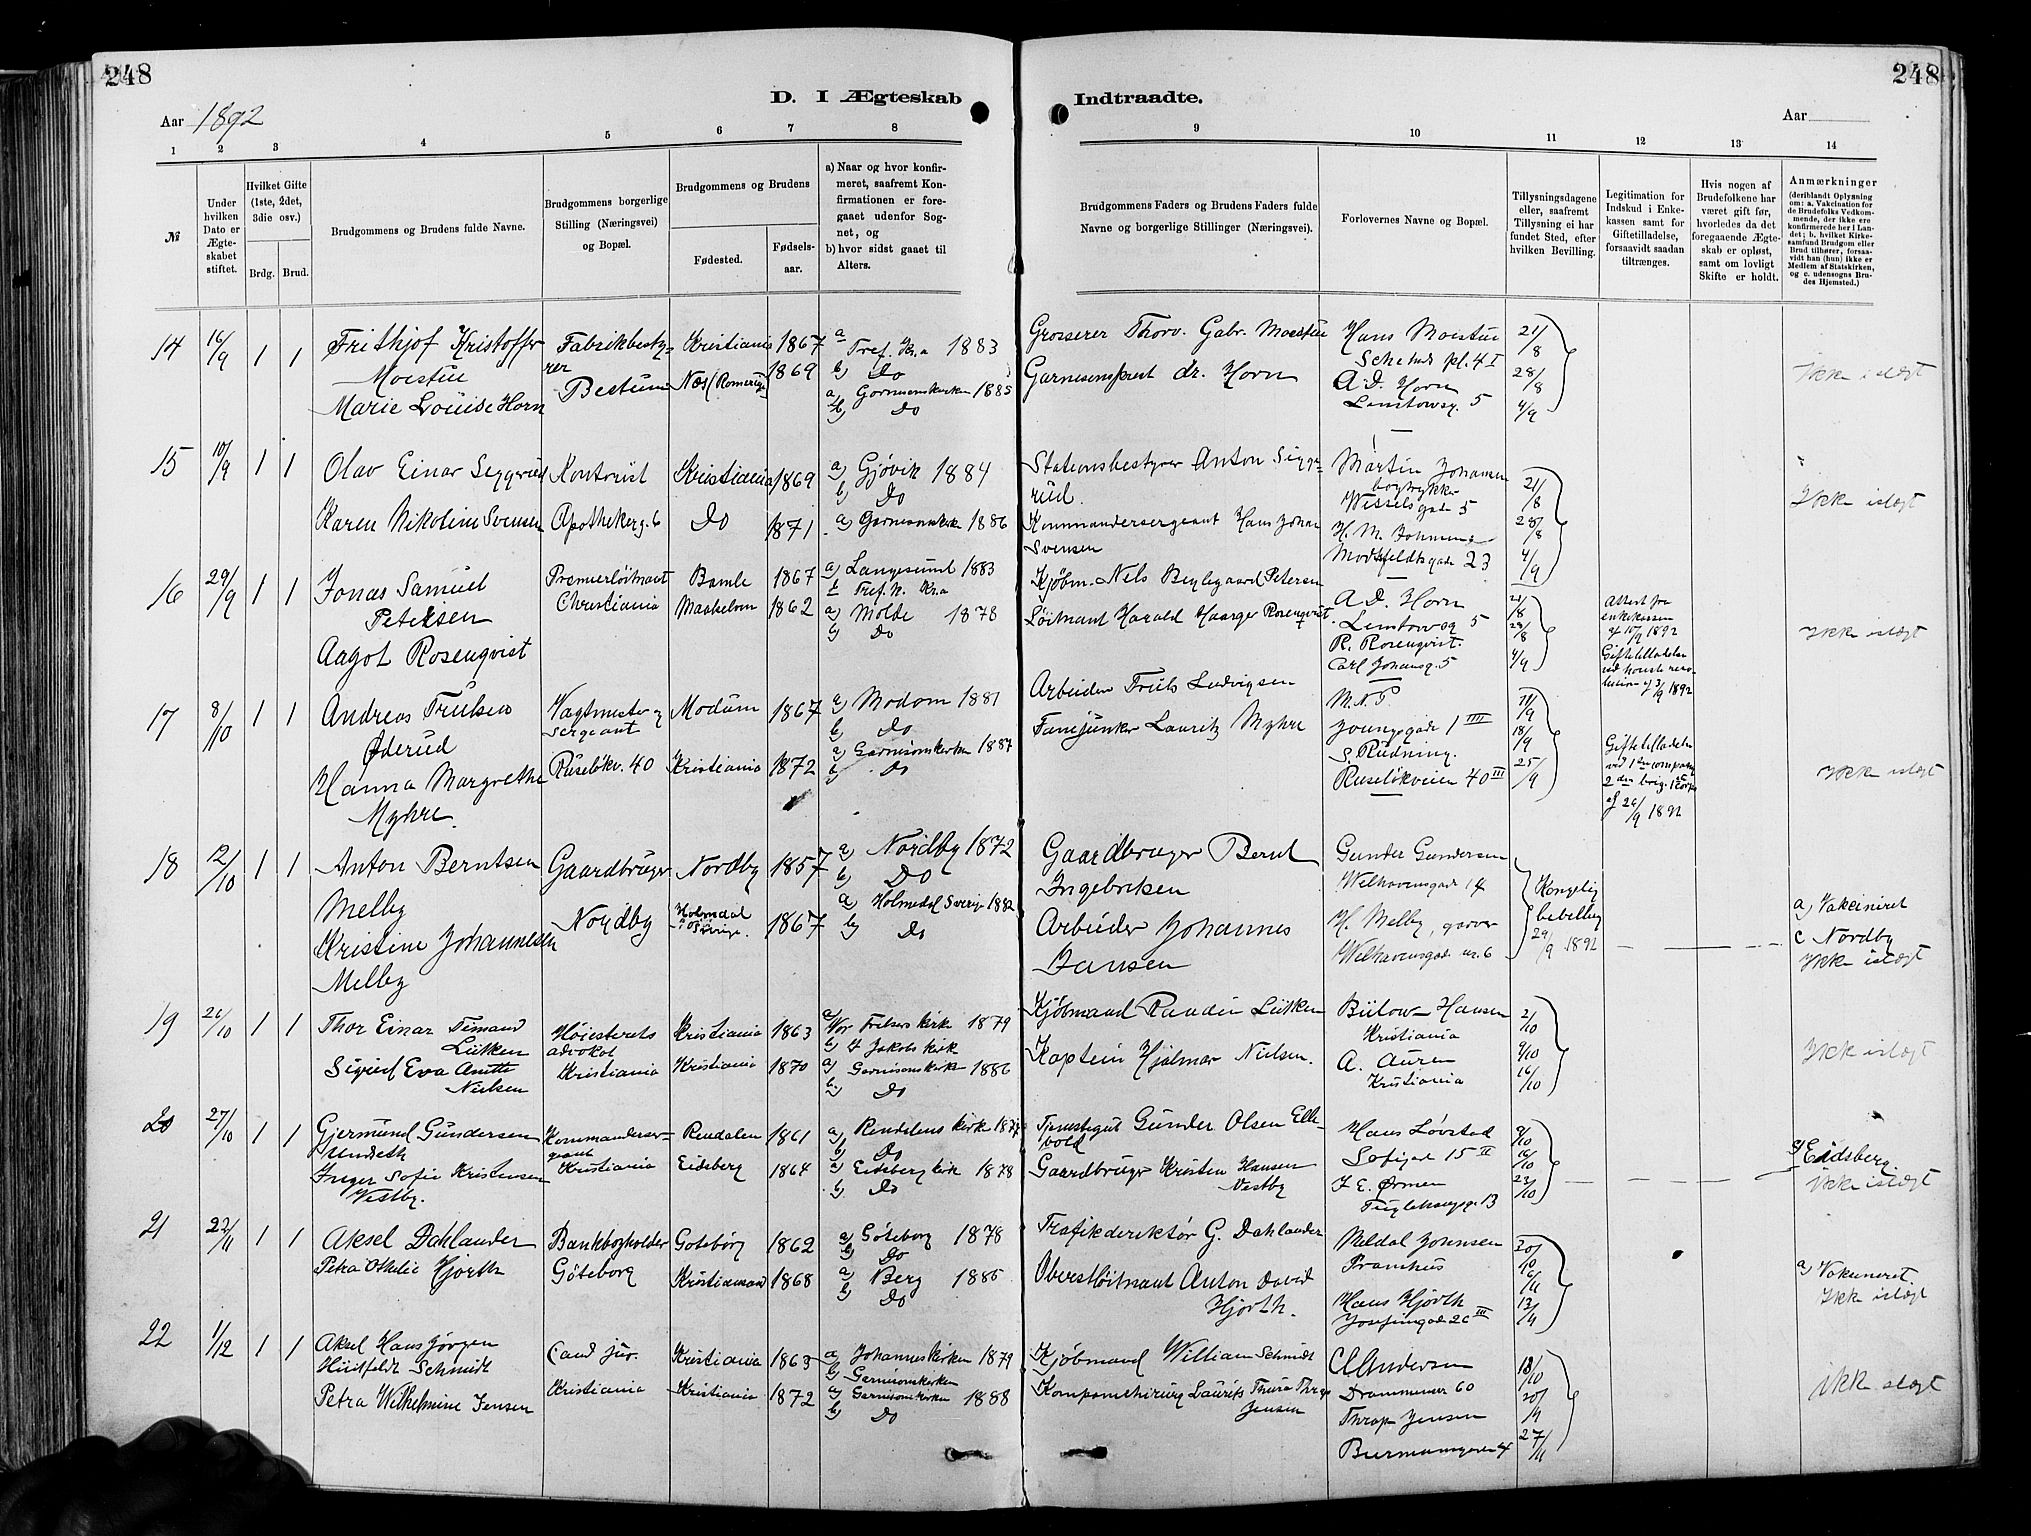 248
248
D. I Ægteskab Indtraadte.
Aar 1892
Aar
1 2 3 4 5 6 7 8 9 10 11 12 13 14
№
Under hvilken Dato er Ægteskabet stiftet.
Hvilket Gifte (1ste, 2det, 3die osv.)
Brdg. Brud.
Brudgommens og Brudens fulde Navne.
Brudgommens borgerlige Stilling (Næringsvei) og Bopæl.
Brudgommens og Brudens
Fødested.
Fødselsaar.
a) Naar og hvor konfirmeret, saafremt Konfirmationen er foregaaet udenfor Sognet, og
b) hvor sidst gaaet til Alters.
Brudgommens Faders og Brudens Faders fulde Navne og borgerlige Stillinger (Næringsvei).
Forlovernes Navne og Bopæl.
Tillysningsdagene eller, saafremt Tillysning ei har fundet Sted, efter hvilken Bevilling.
Legitimation for Indskud i Enkekassen samt for Giftetilladelse, forsaavidt saadan tiltrænges.
Hvis nogen af Brudefolkene har været gift før, hvorledes da det foregaaende Ægteskab er opløst, samt om lovligt Skifte er holdt.
Anmærkninger
(deriblandt Oplysning om: a. Vakcination for de Brudefolks Vedkommende, der ikke ere konfirmerede her i Landet; b. hvilket Kirkesamfund Brudgom eller Brud tilhører, forsaavidt han (hun) ikke er Medlem af Statskirken, og c. udensogns Brudes Hjemsted.)
14 16/9 1 1
Frithjof Kristoffer Moestue
Marie Louise Horn
Fabrikbestyrer
Bestum
Kristiania 1867
Næs (Romerige) 1869
a Tref. Kr.a 1883
b) Do
a) Garnisonskirken 1885
b) Do
Grosserer Thorv. Gabr. Moestue
Garnisonsprest dr. Horn
Hans Moestue
Schehus pl. 4 I
A. D. Horn
Linstowsg. 5
21/8
28/8
4/9
Ikke i slægt
15 10/9 1 1
Olav Einar Seggerud
Karen Nikoline Svensen
Kontorist
Apothekerg. 6
Kristiania 1869
Do 1871
a) Gjøvik 1884
b) Do
a) Garnisonskirk 1886
Stationsbestyrer Anton Siggerud.
Kommandersergeant Hans Johan Svensen
Martin Johansen
bogtrykker
Wesselsgade 5
H. M. Johnsen
Modsfeldtsgade 23
21/8
28/8
4/9
Ikke i slægt
16 29/9 1 1
Jonas Samuel
Petersen
Aagot Rosenqvist
Premierløitnant
Christiania
Bamle 1867
1862
a) Langesund 1883
b Tref. K. Kr.a
a) Molde 1878
b) Do
Kjøbm. Nels Petersen
Løitnant Harald Rosenqvist
A. D. Horn
Linstowsg 5
R. Rosenqvist.
Carl Johansg. 5
21/8
28/8
4/9
Attest fra
enkekassen
af 1892
Giftetilladelse
1892
Ikke i slægt
17 8/10 1 1
Andreas Trulsen
Øderud
Hanna Margrethe
Myhre.
Vagtmester og
Sergeant
Ruseløkv. 40
Modum 1867
Kristiania 1872
a) Modum 1881
b) Do
a) Garnisonskirken 1887
b) Do
Arbeider Truls Ludvigsen
Fanejunker Lauritz Myhre
Youngsgade 1 IIII
S. Rudning.
Ruseløkveien 40 III
11/9
18/9
25/9
Giftetilladelse
ved 1ste compani
2den brig. 1ste corps
af 26/9 1892
Ikke i slægt
18 12/10 1 1
Anton Berntsen
Melby
Kristine Johannesen
Melby
Gaardbruger
Nordby
Nordby 1857
Holmedal
i Sverige. 1867
a) Nordby 1872
b) Do
a) Holmedal Sverige 1882
b) Do
Gaardbruger Bernt
Ingebretsen
Arbeider Johannes
Jansen
Gunder Gundersen
Welhavensgade 14
H. Melby, garver
Welhavensgade nr. 6
Kongelig
bevilling
29/9 1892
a) Vakcineret
c Nordby
Ikke i slægt
19 26/10 1 1
Thor Einar Temand
Lütken
Sigrid Eva Anette
Nielsen
Høiesterets
advokat
Kristiania
Kristiania 1863
Kristiania 1870
a) Vor Frelsers Kirk 1879
b) St Jakobs Kirk
a) Garnisonskirken 1886
b) Do
Kjøbmand Lütken
Kaptein Hjalmar Nielsen.
Bülow Hansen
Kristiania
A. Auren
Kristiania
2/10
9/10
16/10
Ikke i slægt
20 27/10 1 1
Gjermund Gundersen
Undseth
Inger Sofie Kristensen
Vestby.
Kommandersergeant
Kristiania
Rendalen 1861
Eidsberg 1864
a) Rendalens Kirk
b) Do
a) Eidsberg kirk 1878
b) Do
Gunder Olsen Ellevold
Gaardbruger Kristen Hansen
Vestby
Hans Løvstad
Sofiegade 15 II
J. E. Ørmen
13
9/10
16/10
23/10
c) Eidsberg.
ikke i slægt
21 22/11 1 1
Aksel Dahlander
Petra Othilie Hjorth
Bankbogholder
Göteborg
Gøteborg 1862
Kristiansand 1868
a) Gøteborg 1878
b) Do
a) Berg 1885
b) Do
Trafikdirektør G. Dahlander
Oberstløitnant Anton David
Hjorth.
Meldal Johnsen
Hans Hjorth
Josefinegade 26 III
a) Vakcineret.
Ikke i slægt
22 1/12 1 1
Aksel Hans Jørgen
Huitfeldt Schmidt
Petra Wilhelmine Jensen
Cand jur.
Kristiania
Kristiania 1863
Kristiania 1872
a Johanneskirken 1879
b) Garnisonskirken
a) Garnisonskirken 1888
b) Do
Kjøbmand William Schmidt
Kompanichirurg Laurits Thura Thrap
Jensen
Andersen
Drammensv 60
Thrap Jensen
4
27/11
ikke i slægt